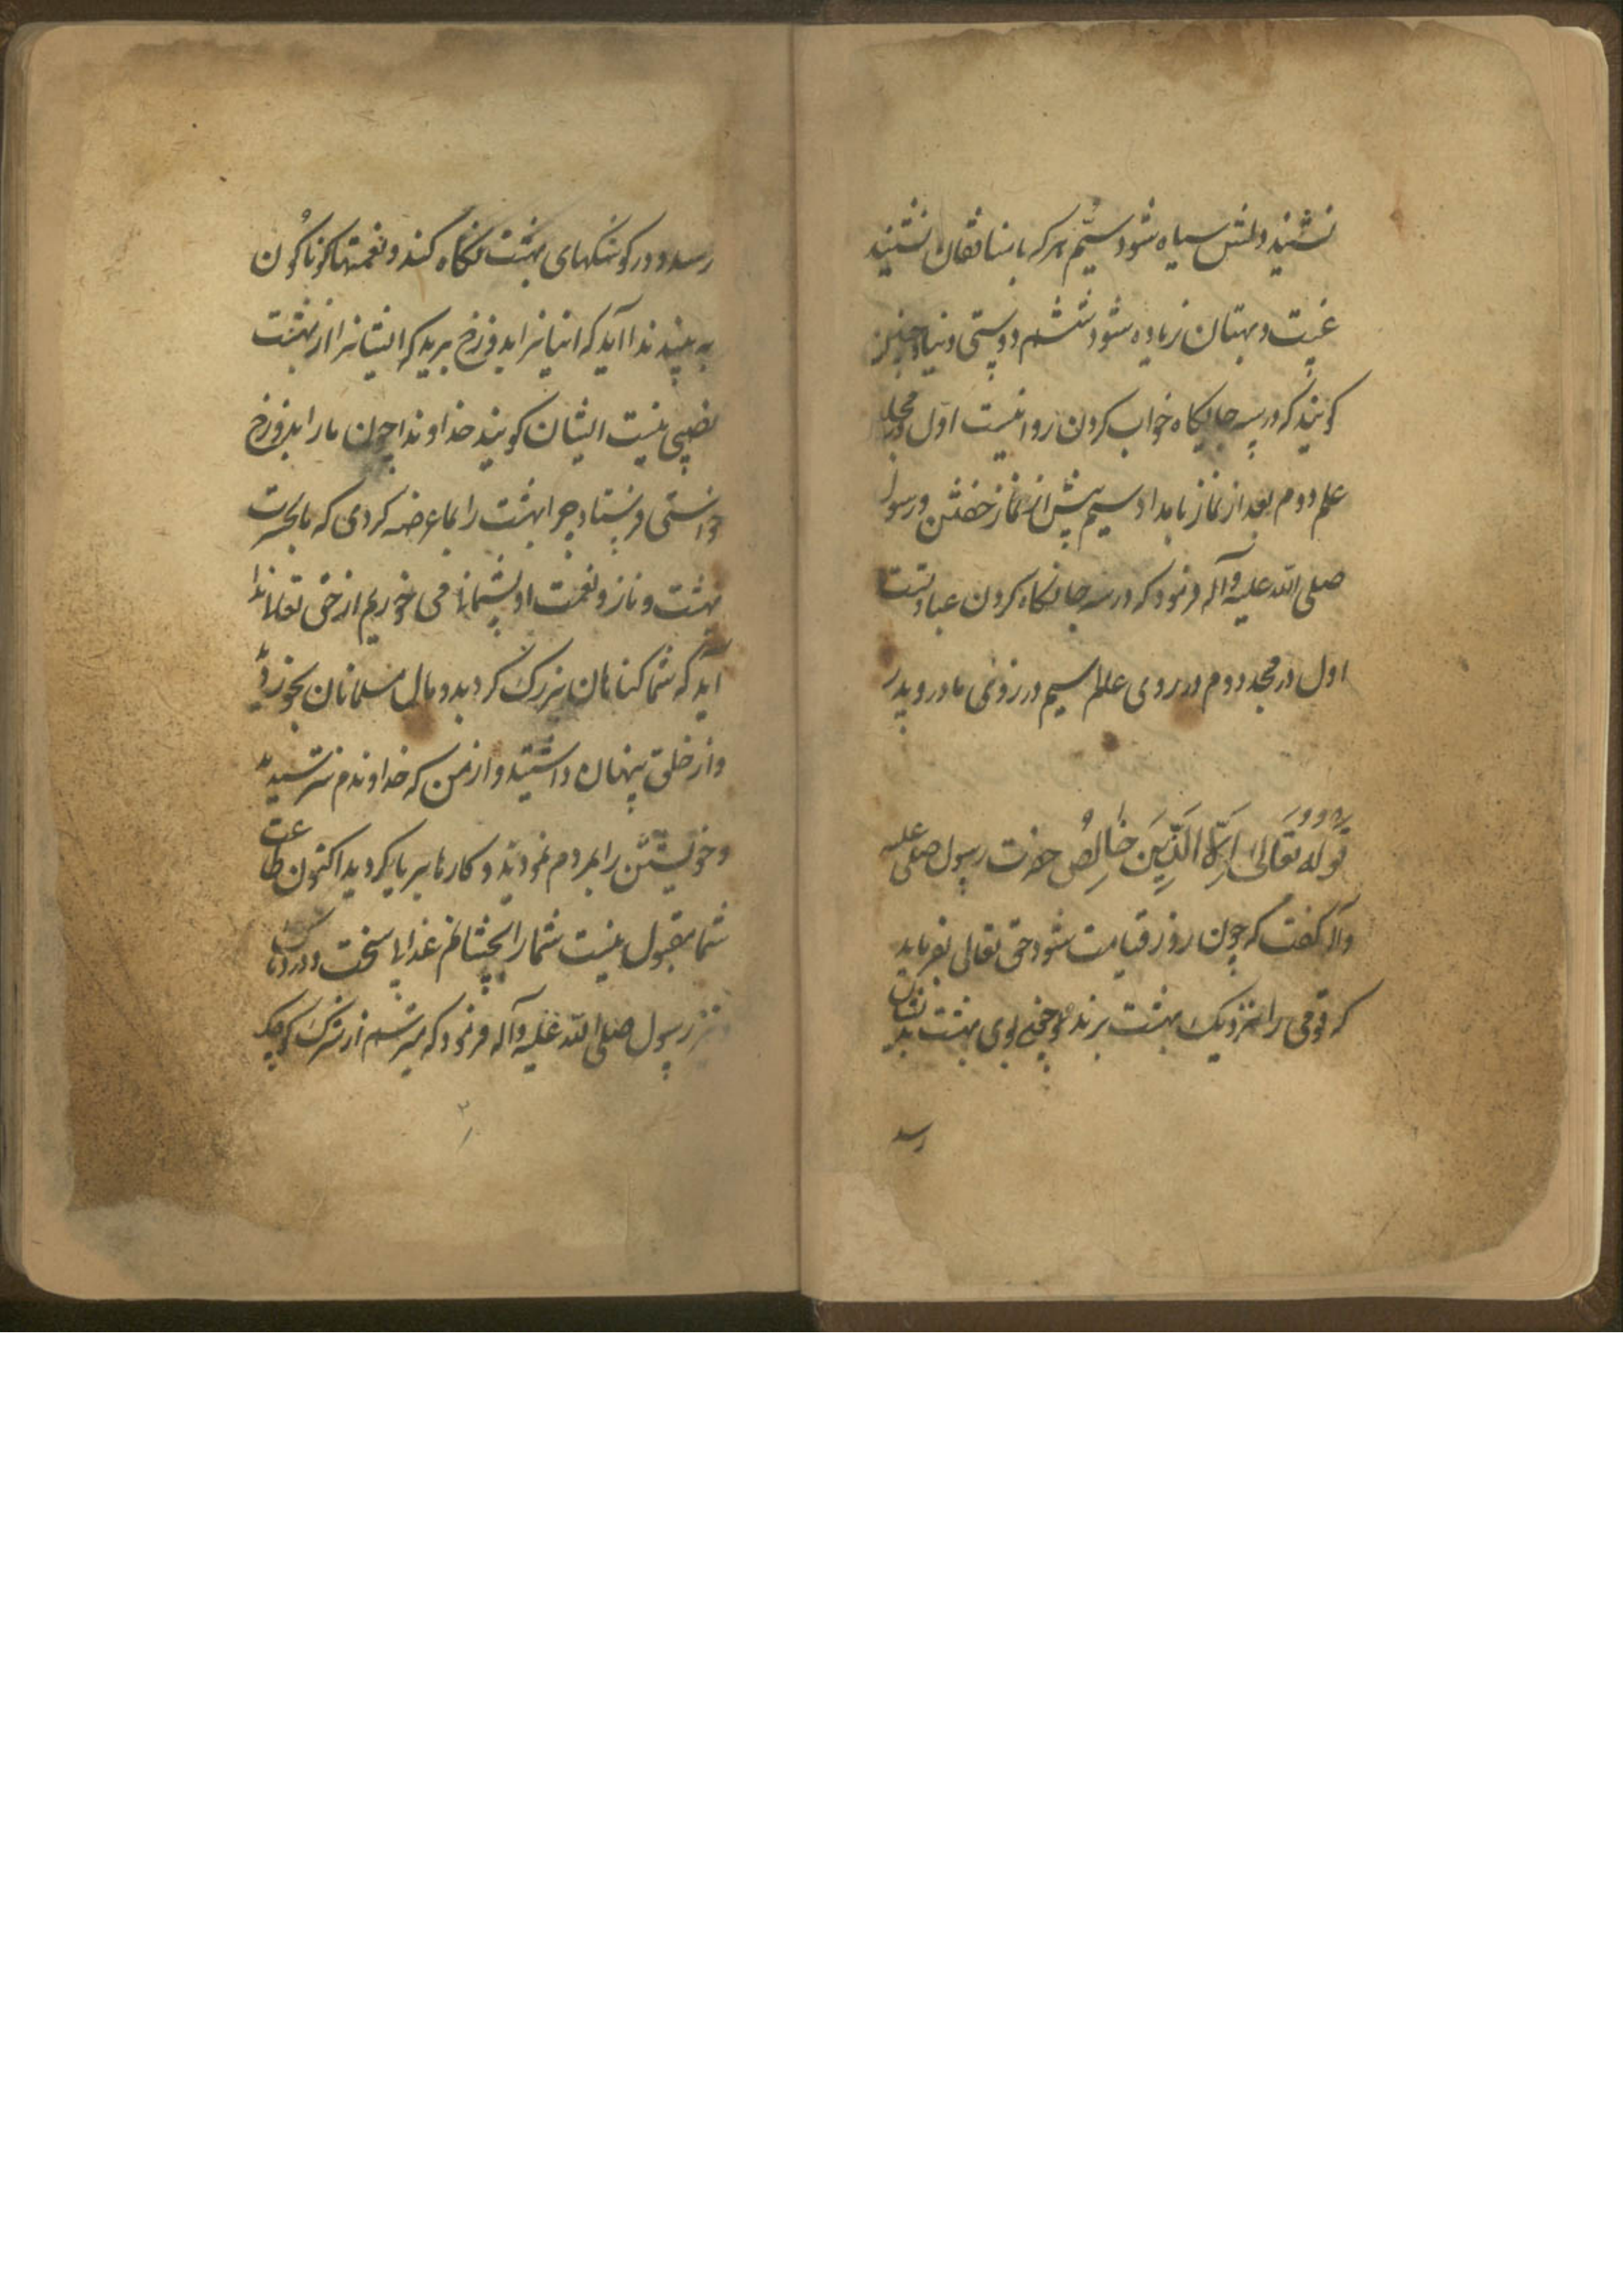 نشیند دلش سیاه شود سیّم هر که با منافقان نشیند
غیبت و بهتان زیاده شود ششم دوستی دنیا و چنین
کویند که در سه جایکاه خواب کردن روا نیست اول در مجلس
علم دوم بعد از نماز بامداد سیم پیش از نماز خفتن و رسول
صلی الله علیه وآله فرمود که در سه جا نکاه کردن عبادتست
اول در مسجد دوم در روی عالم سیم در روی مادر و پدر
قوله تعالی الا لله الدین خالص حضرت رسول صلی علیه
وآله کفت که چون روز قیامت شود حق تعالی بفرماید
که قومی را نزدیک بهشت برند چنانچه بوی بهشت بدیشان
رسد
رسد و در کوشکهای بهشت نکاه کنند و نعمتها کوناکون
به بینند ندا آید که اینانرا بدوزخ برید که ایشانرا از بهشت
نصیبی نیست ایشان کویند خداوندا چون ما را بدوزخ
خواستی فرستاد چرا بهشت را بما عرضه کردی که ما بحسرت
بهشت و ناز و نعمت او پشیمانی خوریم از حق تعالا ندا
آید که شما کناهان بزرک کردید و مال مسلمانان بخوردید
و از خلق پنهان داشتید و از من که خداوندم نترسیدید
و خویشتن را بمردم نمودید و کارها بریا کردید اکنون طاعت
شما مقبول نیست شما را بچشانم عذاب سخت و دردناک
و نیز رسول صلی الله علیه وآله فرمود که میترسم از شرک کوچک